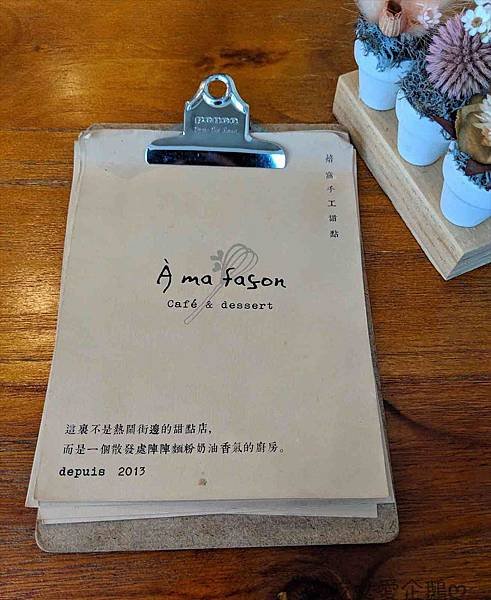 焙窩手工甜點
À ma façon
Café & dessert
這裏不是熱鬧街邊的甜點店,
而是一個散發處陣陣麵粉奶油香氣的廚房。
depuis 2013
愛企鵝